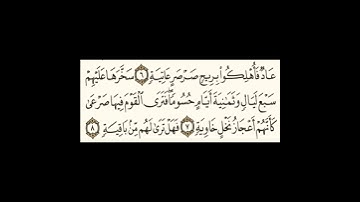 عَادٌ فَأُهْلِكُوا۟ بِرِيحٍ صَرْصَرٍ عَاتِيَةٍ ٦ سَخَّرَهَا عَلَيْهِمْ
سَبْعَ لَيَالٍ وَثَمَٰنِيَةَ أَيَّامٍ حُسُومًا فَتَرَى ٱلْقَوْمَ فِيهَا صَرْعَىٰ
كَأَنَّهُمْ أَعْجَازُ نَخْلٍ خَاوِيَةٍ ٧ فَهَلْ تَرَىٰ لَهُم مِّنۢ بَاقِيَةٍ ٨